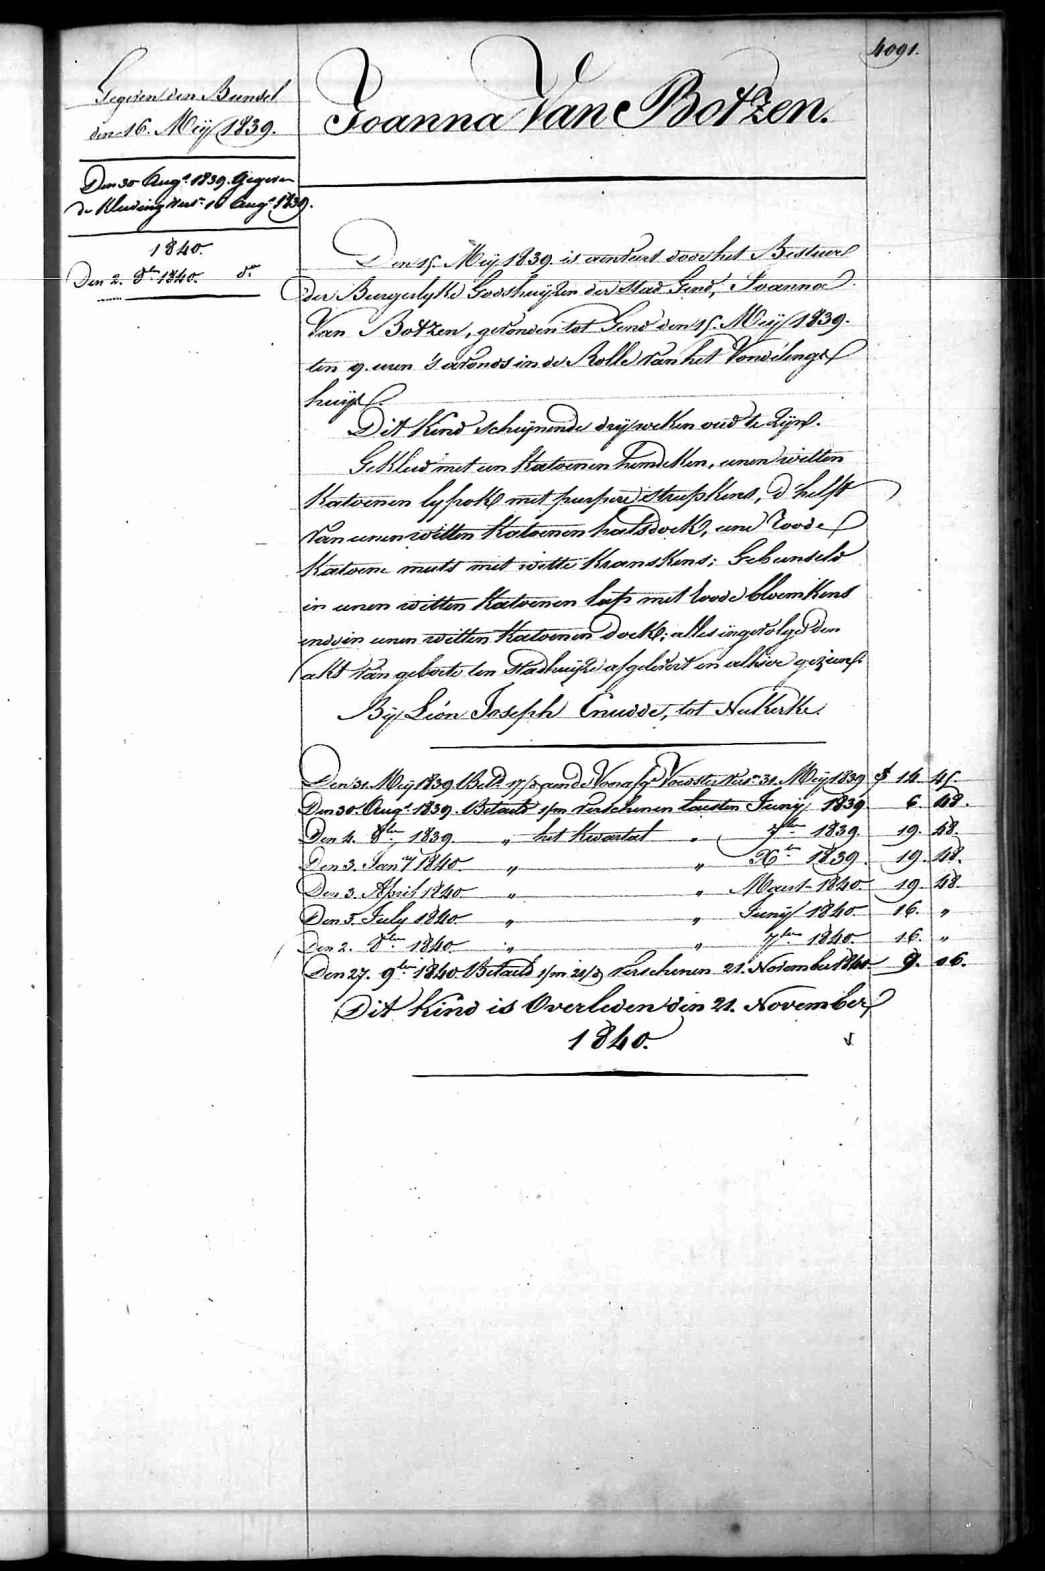 4091.
Gegeven den Bundel
den 16. Meij 1839.
Den 30 Augt. 1839. Gegeven
de Kleeding vers. 16 Augt. 1839.
1840.
Den 2. 8ber 1840. do
Joanna Van Botzen.
Den 15. Meij 1839. is aenveird door het Bestuur
der Burgerlyke Godshuijzen der Stad Gend, Joanna
Van Botzen, gevonden tot Gend den 15. Meij 1839.
ten 9. uren 's avonds in de Rolle van het Vondelings
huijs.
Dit Kind schijnende drij weken oud te zijn.
Gekleed met een Katoenen hemdeken, eenen witten
Katoenen lyfrok met purpere streepkens, d'helft
van eenen witten Katoenen halsdoek, eene roode
Katoene muts met witte Kranskens; Gebunseld
in eenen witten Katoenen lap met roode bloemkens
ende in eenen witten Katoenen doek; alles ingevolge den
akt van geboorte ten Stadhuijze afgelevert en alhier gezien.
Bij Léon Joseph Cnudde, tot Nukerke.
Den 31. Meij 1839. Betd. 17/d aen de Voorafge Voedster vers. 31. Meij 1839 f 14 45.
Den 30. Augt. 1839. Betaeld 1/m verschenen laesten Junij 1839 6. 48.
Den 4. 8ber 1839. " het Kwartael " 7ber 1839. 19. 48.
Den 3. Jany 1840. " " Xber 1839. 19. 48.
Den 3. April 1840. " " Maert 1840. 19. 48.
Den 5. July 1840. " " Junij 1840. 16. "
Den 2. 8ber 1840. " " 7ber 1840. 16. "
Den 27. 9ber 1840. Betaeld 1/m 21/d verschenen 21. November 1840. 9. 06.
Dit Kind is Overleden den 21. November
1840.